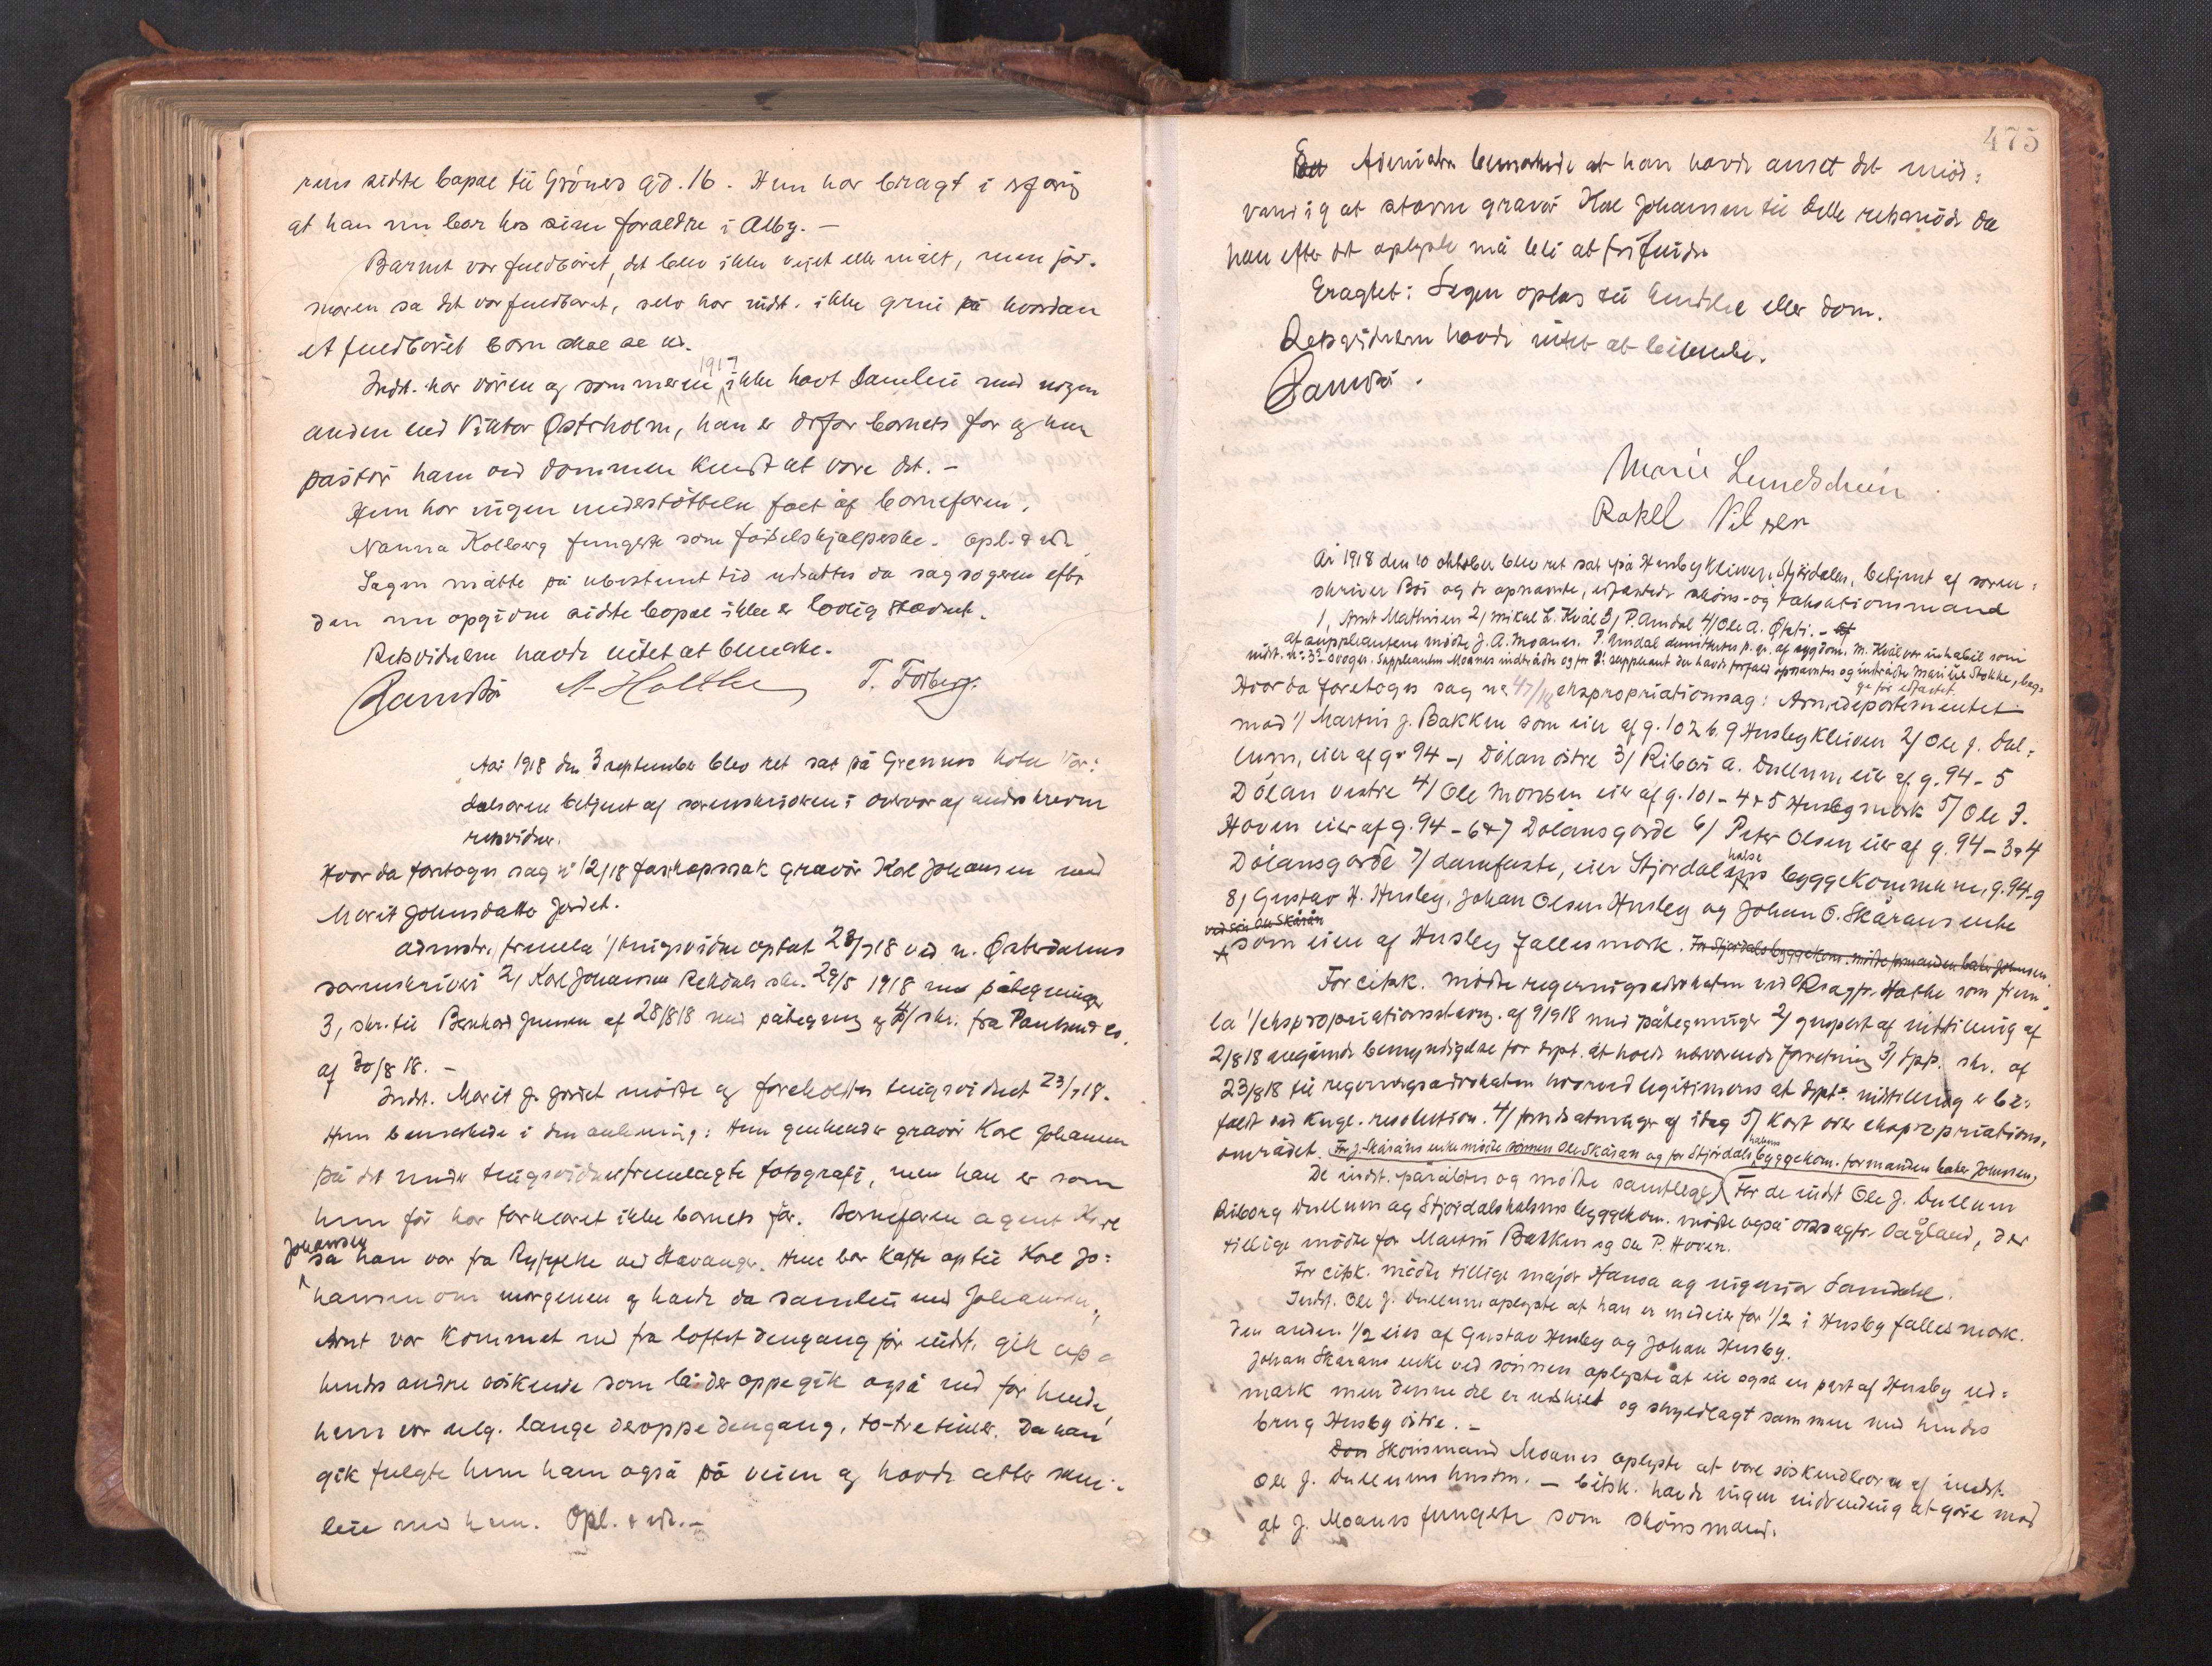 sidste bopæl til Grönes gd. 16. Hun har bragt i erfaring
at han nu bor hos sine foræeldre i Alby. –
Barnet var fuldbåret, det blev ikke veiet eller målt, men jor-
moren sa det var fuldbåret, selv har indst. ikke greie på hvordan
et fuldbåret barn skal se ut.
Indst. har våren og sommeren 1917 ikke havt samleie med nogen
anden end Viktor Østerholm, han er derfor barnets far og hun
påstår ham ved dommen kjendt at være det. –
Hun har ingen understöttelse faet af barnefaren.
Nanna Kolberg fungerte som födselshjælperske. Opl. & vedt.
Sagen måtte på ubestemt tid utsættes da sagsögeren efter
den nu opgivne sidste bopæl ikke er lovlig stævnet.
Retsvidnerne havde intet at bemerke.
A. Holthe T. Forberg.
Aar 1918 den 3 september blev ret sat på Grennes hotel Vær-
dalsören betjent af sorenskriveren i overvær af underskrevne
retsvidner.
Hvor da foretoges sag nr 12/18 farskapssak gravör Karl Johansen med
Marit Johnsdatter Jördet.
Admstr. fremla 1/ tingsvidne optat 23/7 18 ved n. Østerdalens
sorenskriveri 2/ Karl Johansen Rekdals skr. 29/5 1918 med påtegninger
3, skr. til Bernhard Jensen af 28/8 18 med påtegning og 4/ skr. fra Paulsen & Co.
af 30/8 18. –
Indst. Marit J. Jördet mötte og foreholdtes tingsvidnet 23/7 18.
Hun bemerkede i den anledning: Hun gjenkender gravör Karl Johansen
på det under tingsvidnet fremlagte fotografi, men han er som
hun för har forklaret ikke barnets far. Barnefaren agent Karl
Johansen
sa han var fra Ryfylke ved Stavanger. Hun bar kaffe op til Karl Jo-
hansen om morgenen og havde da samleie med Johansen,
Arnt var kommet ned fra loftet dengang för indst. gik op og
hendes andre söskende som lå der oppe gik også ned för hende,
hun var selv lange deroppe dengang, to-tre timer. Da han
gik fulgte hun ham også på veien og havde atter sam-
leie med ham. Opl. & vedt. –
475
Administr. bemerkede at han havde anset det unöd-
vendig at stævne gravör Karl Johansen til dette retsmöde da
han efter det oplyste må bli at frifinde
Eragtet: Sagen optas til kjendelse eller dom.
Retsvidnerne havde intet at bemerke.
Marie Lundschein
Rakel Nilsen
År 1918 den 10 oktober blev ret sat på Husby Kleiven, Stjördalen, betjent af soren-
skriver Böi og de opnævnte, edfæstede skjöns- og taksationsmænd
1, Arnt Mathisen 2, Mikal L. Kvål 3, P. Arndal 4/ Ole A. Øfsti. –
af suppleantene mötte J. A. Moanes. P. Arndal dimitteres p. gr. af sygdom. M. Kvål var inhabil som
indst. nr. 3's svoger. Suppleanten Moanes indtrådte og for 2. suppleant der havde forfald opnævntes og indtrådte Marius Stokke, beg-
ge för edfæstet.
Hvor da foretoges sag nr. 47/18 ekspropriationssag: Armédepartementet
mod 1/ Martin J. Bakken som eier af g. 102 b. 9 Husby Kleiven 2/ Ole J. Dul-
lum, eier af gr 94 – 1 Dölan östre 3/ Riborg A. Dullum, eier af g. 94 – 5
Dölan vestre 4/ Ole Monsen eier af g. 101 – 4 & 5 Husbymark 5/ Ole P.
Hoven eier af g. 94 – 6 & 7 Dölansgårde 6/ Peter Olsen eier af g. 94 – 3 & 4
Dölansgårde 7/ damfæste, eier Stjördalshalsens byggekommune, g. 94 – 9
8, Gustav H. Husby, Johan Olsen Husby og Johan O. Skårans enke
ved sön Ole Skårån
som eiere af Husby fallesmark. For Stjördals byggekom. mötte formanden baker Johnsen
For citsk. mötte regjeringsadvokaten ved o.r.sagf. Hatke som frem-
la 1/ ekspropriationsstevng. af 9/9 18 med påtegninger 2/ gjenpart af indstilling af
2/8 18 angående bemyndigelse for dept. at holde nærværende forretning 3/ Dpt. skr. af
23/8 18 til regjeringsadvokaten hvorved legitimeres at dpts. indstilling er bi-
faldt ved kngl. resolution. 4/ forutsætninger af idag 5/ kart over ekspropriations-
området. For J. Skåråns enke mötte sönnen Ole Skåran og for Stjördalshalsens byggekom. formanden baker Johnsen,
De indst. påråbtes og mötte samtlige, For de indst Ole J. Dullum
Riborg Dullum og Stjördalshalsens byggekom. mötte også o.r.sagfr. Vågland, der
tillige mötte for Martin Bakken og Ole P. Hoven.
For citsk. mötte tillige major Hansa og ingeniör Samdahl.
Indst. Ole J. Dullum oplyste at han er medeier for 1/2 i Husby fallesmark.
den anden 1/2 eies af Gustav Husby og Johan Husby.
Johan Skårans enke ved sönnen oplyste at eie også en part af Husby ud-
mark men denne del er utskilt og skyldlagt sammen med hendes
brug Husby östre. –
Skönsmand Moanes oplyste at være söskendebarn af indst.
Ole J. Dullums hustru. – Citsk. havde ingen indvending at göre mod
at J. Moanes fungerte som skönsmand.